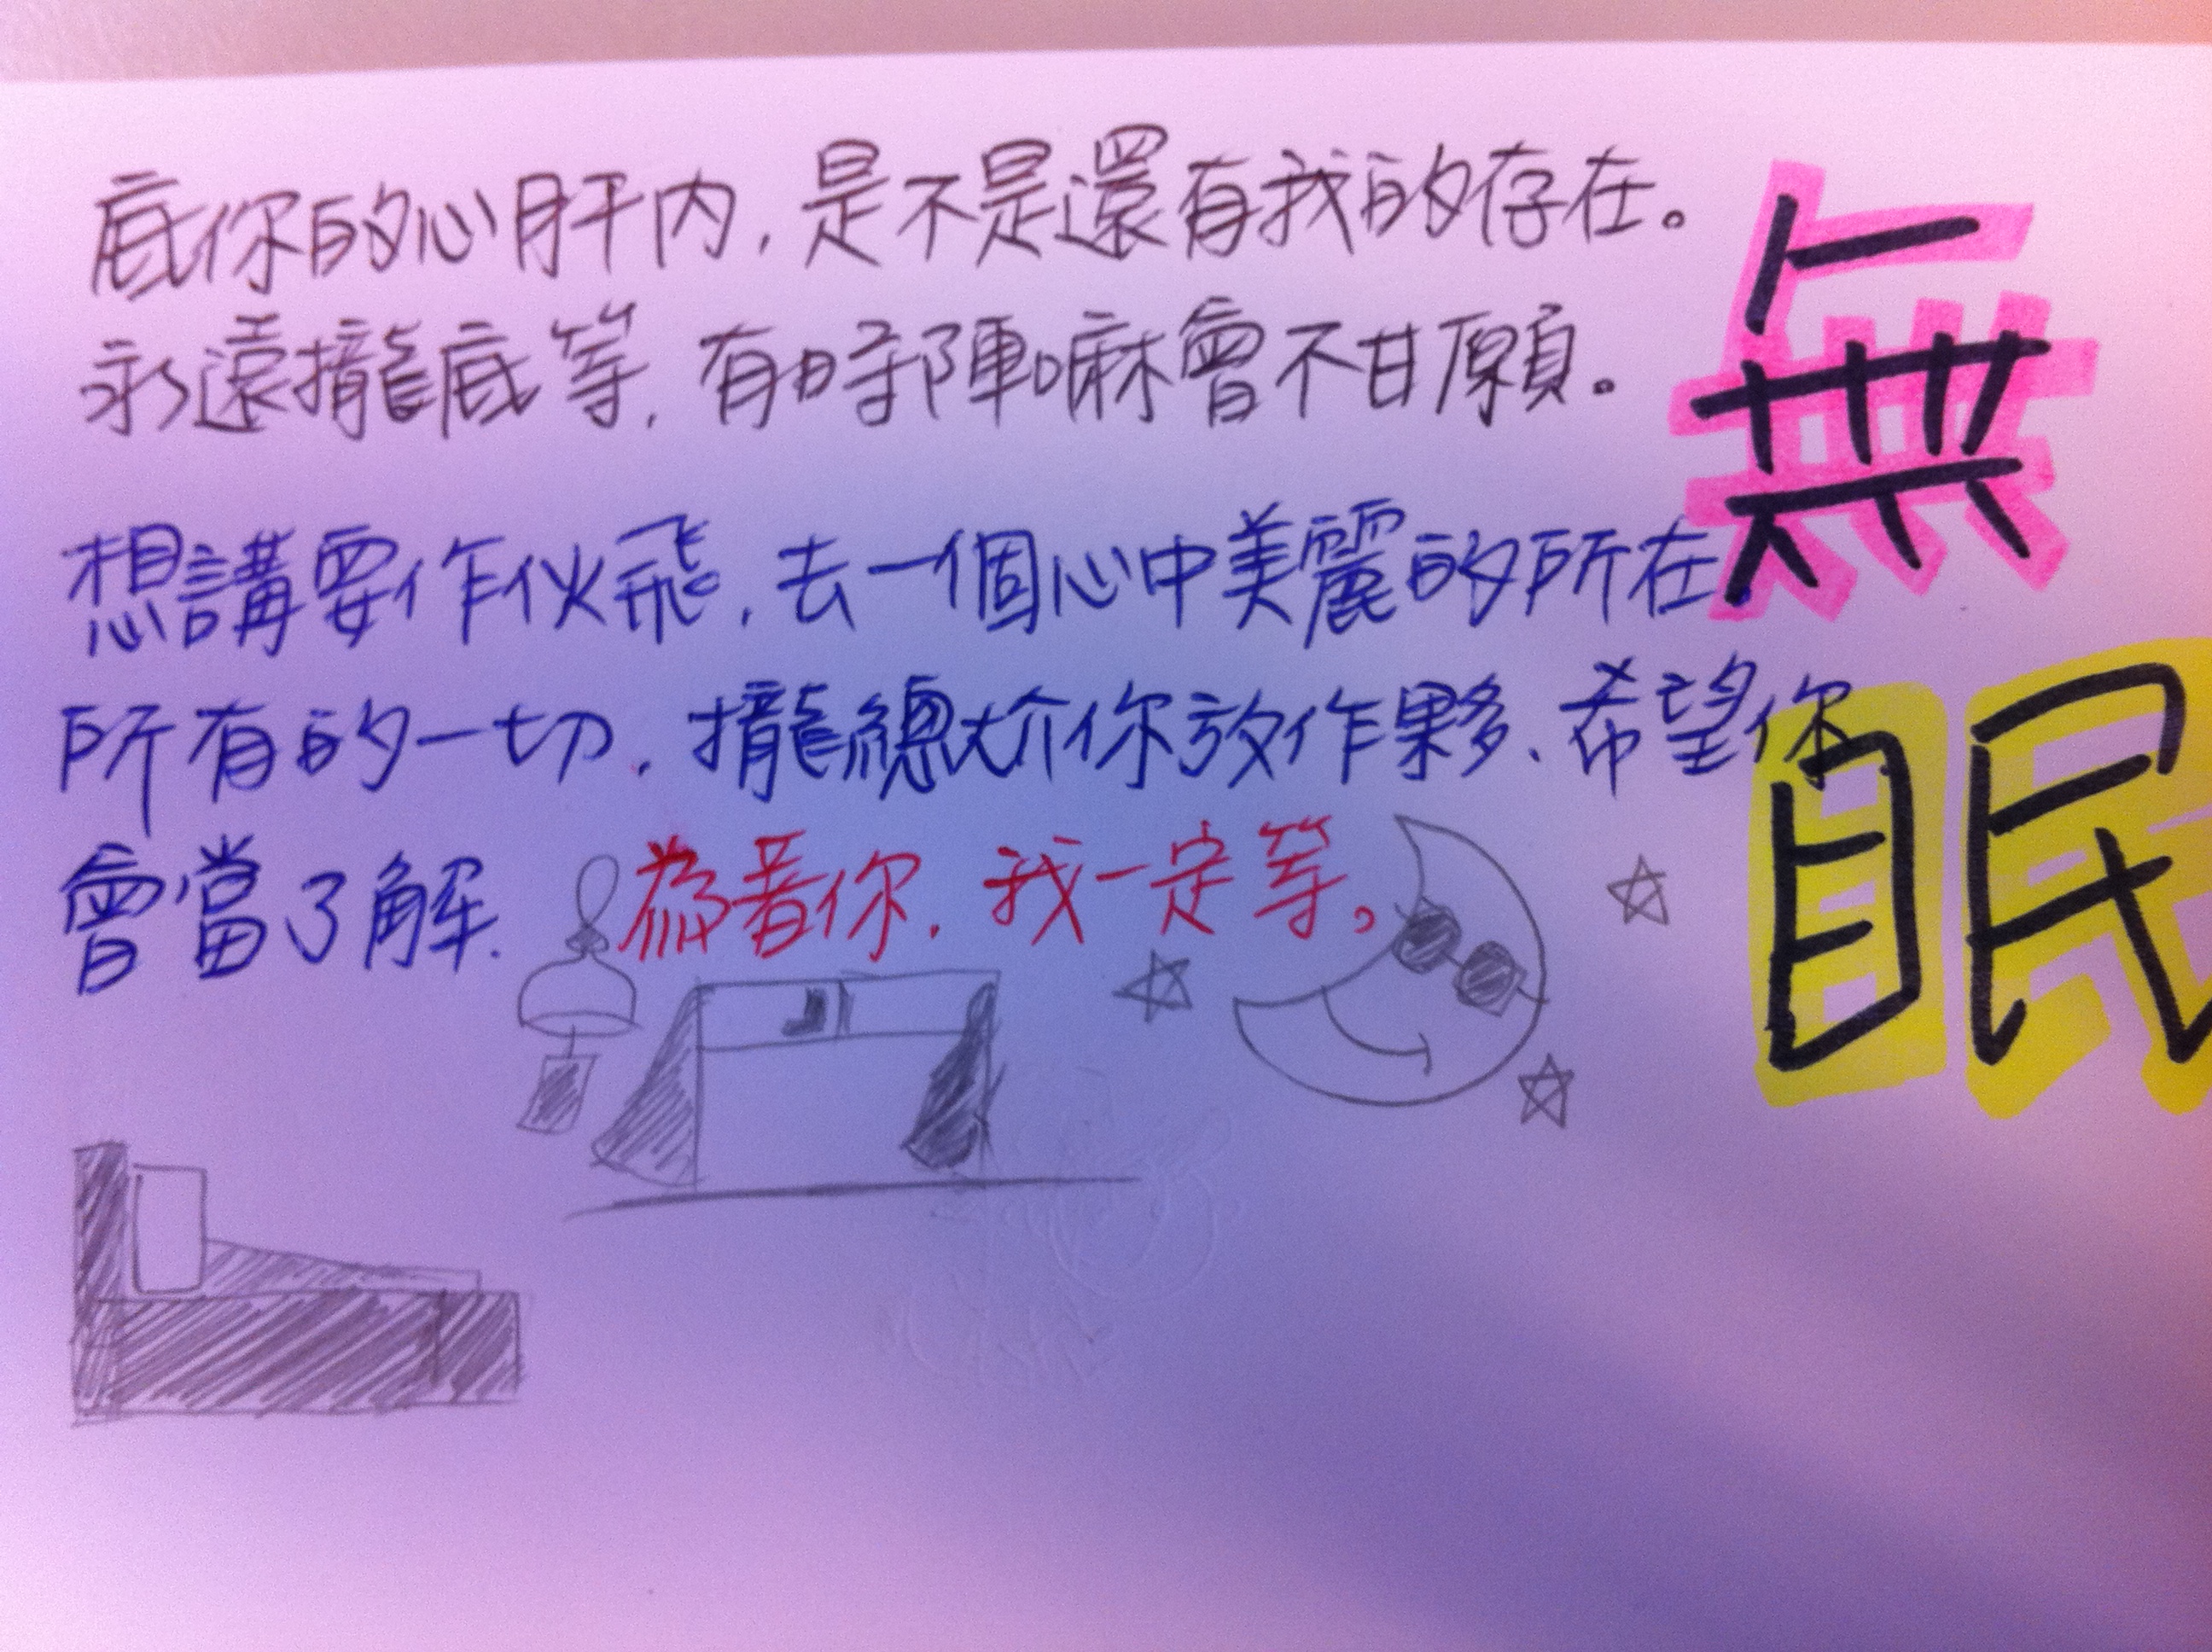 底你的心肝內,是不是還有我的存在。
永遠攏底等,有時陣嘛會不甘願。
想講要作伙飛,去一個心中美麗的所在
所有的一切,攏總尬你放作夥、希望你
會當了解.
為著你,我一定等。
無
眠